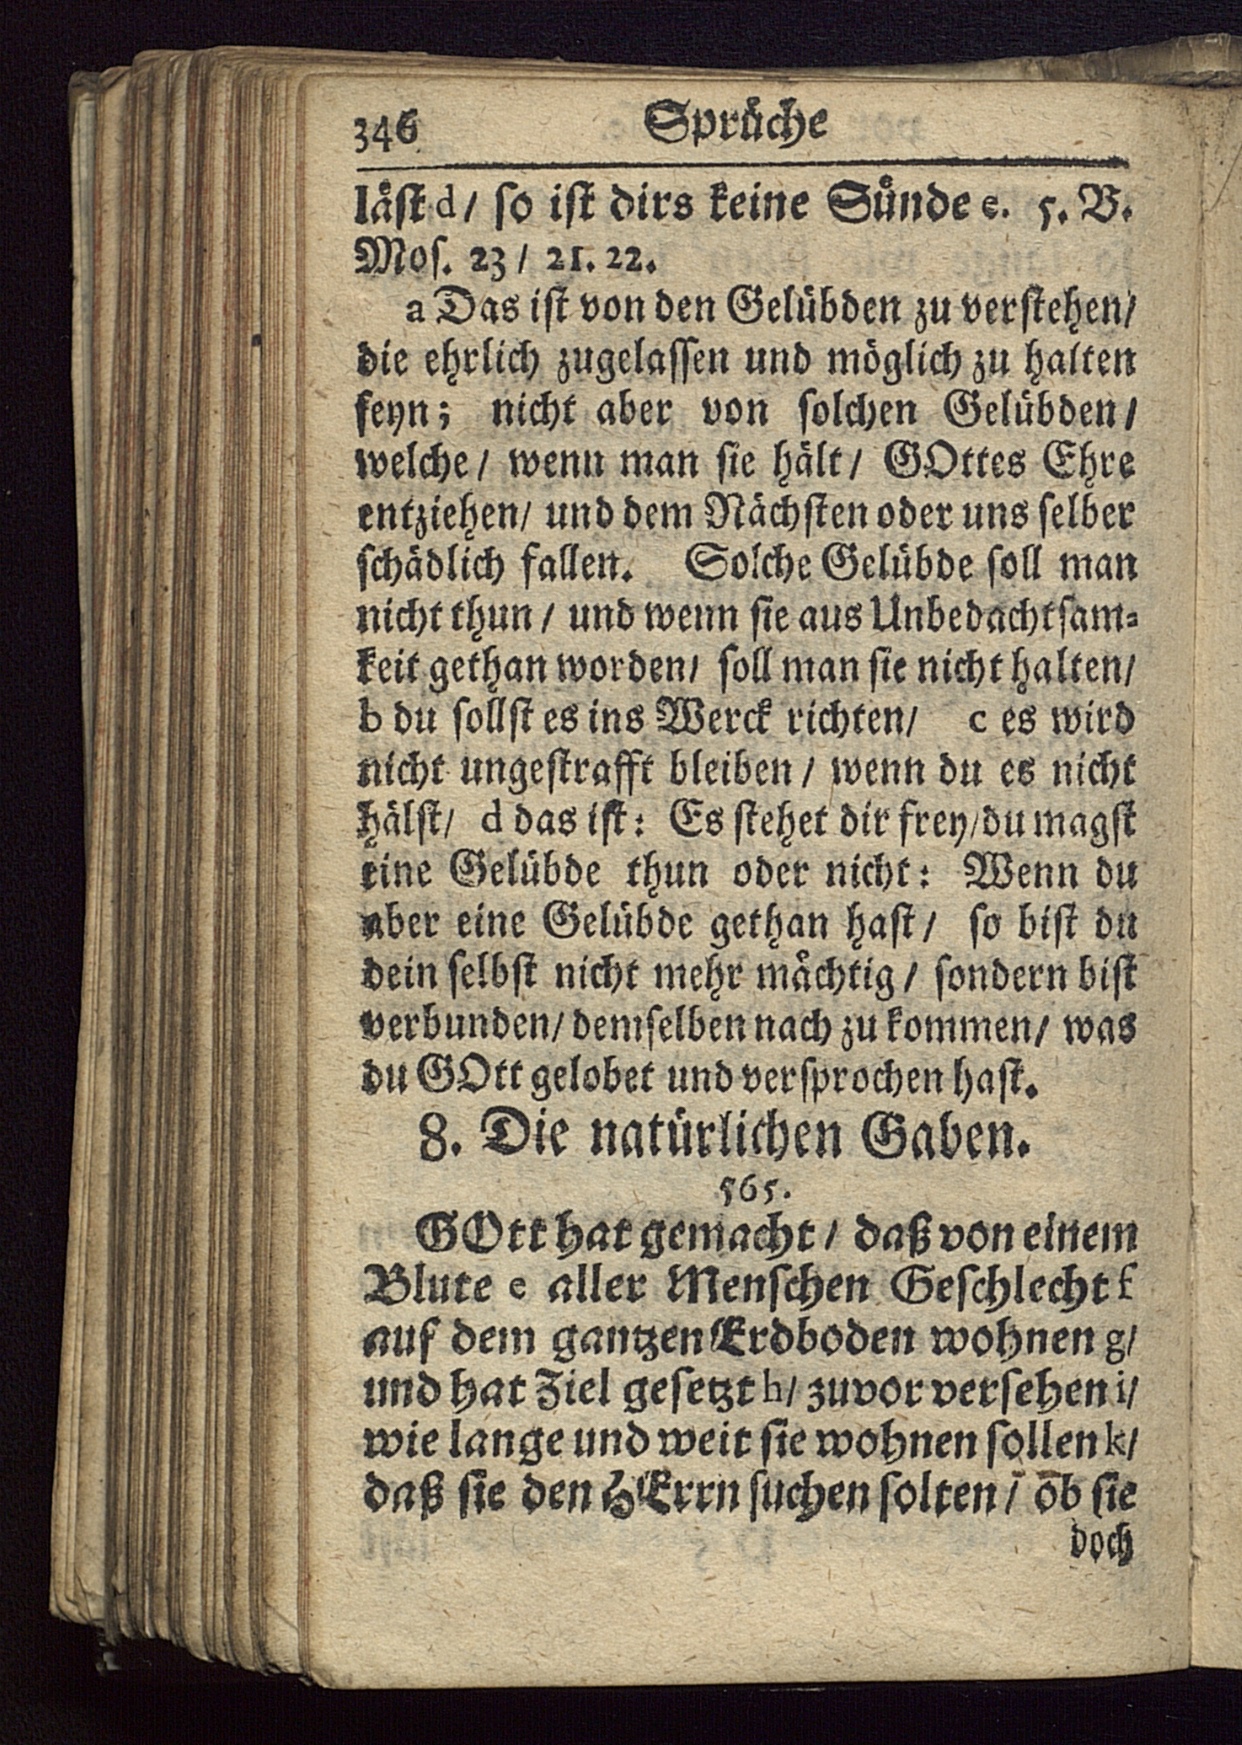 346 Sprüche
läst d/ so ist dirs keine Sünde e. 5. B.
Mos. 23/ 21. 22.
a Das ist von den Gelübden zu verstehen/
die ehrlich zugelassen und möglich zu halten
seyn; nicht aber von solchen Gelübden/
welche/ wenn man sie hält/ GOttes Ehre
entziehen/ und dem Nächsten oder uns selber
schädlich fallen. Solche Gelübde soll man
nicht thun/ und wenn sie aus Unbedachtsam-
keit gethan worden/ soll man sie nicht halten/
b du sollst es ins Werck richten/ c es wird
nicht ungestrafft bleiben/ wenn du es nicht
hälst/ d das ist: Es stehet dir frey/ du magst
eine Gelübde thun oder nicht: Wenn du
aber eine Gelübde gethan hast/ so bist du
dein selbst nicht mehr mächtig/ sondern bist
verbunden/ demselben nach zu kommen/ was
du GOtt gelobet und versprochen hast.
8. Die natürlichen Gaben.
565.
GOtt hat gemacht/ daß von einem
Blute e aller Menschen Geschlecht f
auf dem gantzen Erdboden wohnen g/
und hat Ziel gesetzt h/ zuvor versehen i/
wie lange und weit sie wohnen sollen k/
daß sie den HErrn suchen solten/ ob sie
doch